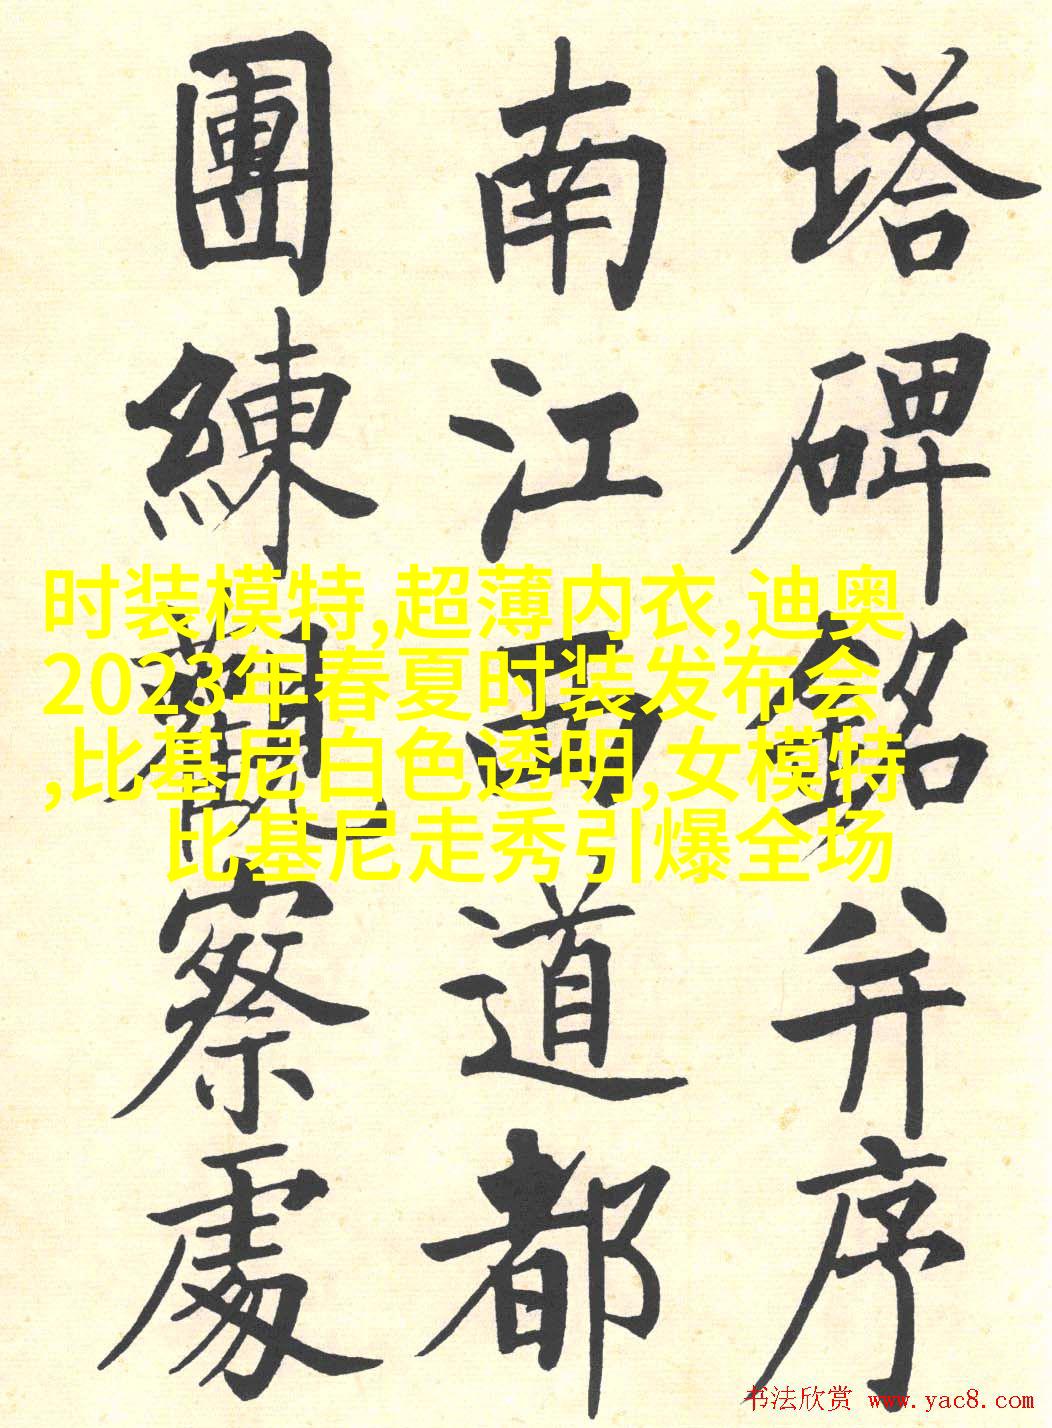 塔碑銘并序
南江西道都
團練觀察處
时装模特,超薄内衣,迪奥
2023年春夏时装发布会
,比基尼白色透明,女模特
比基尼走秀引爆全场
书法欣赏 www.yac8.com